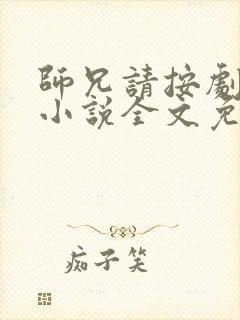 師兄請按劇
小說全文免
痴子笑